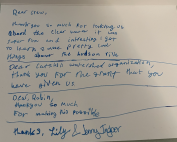 Dear crew,
thank you so much for looking us
about the clear water it was
super fun and interesting I got
to learn some pretty cool
things about the hudson river
Dear Sarah's watershed organization,
thank you for the that you
have given us
Dear, Robin,
thank you so much
For making this possible
thanks, Lily &